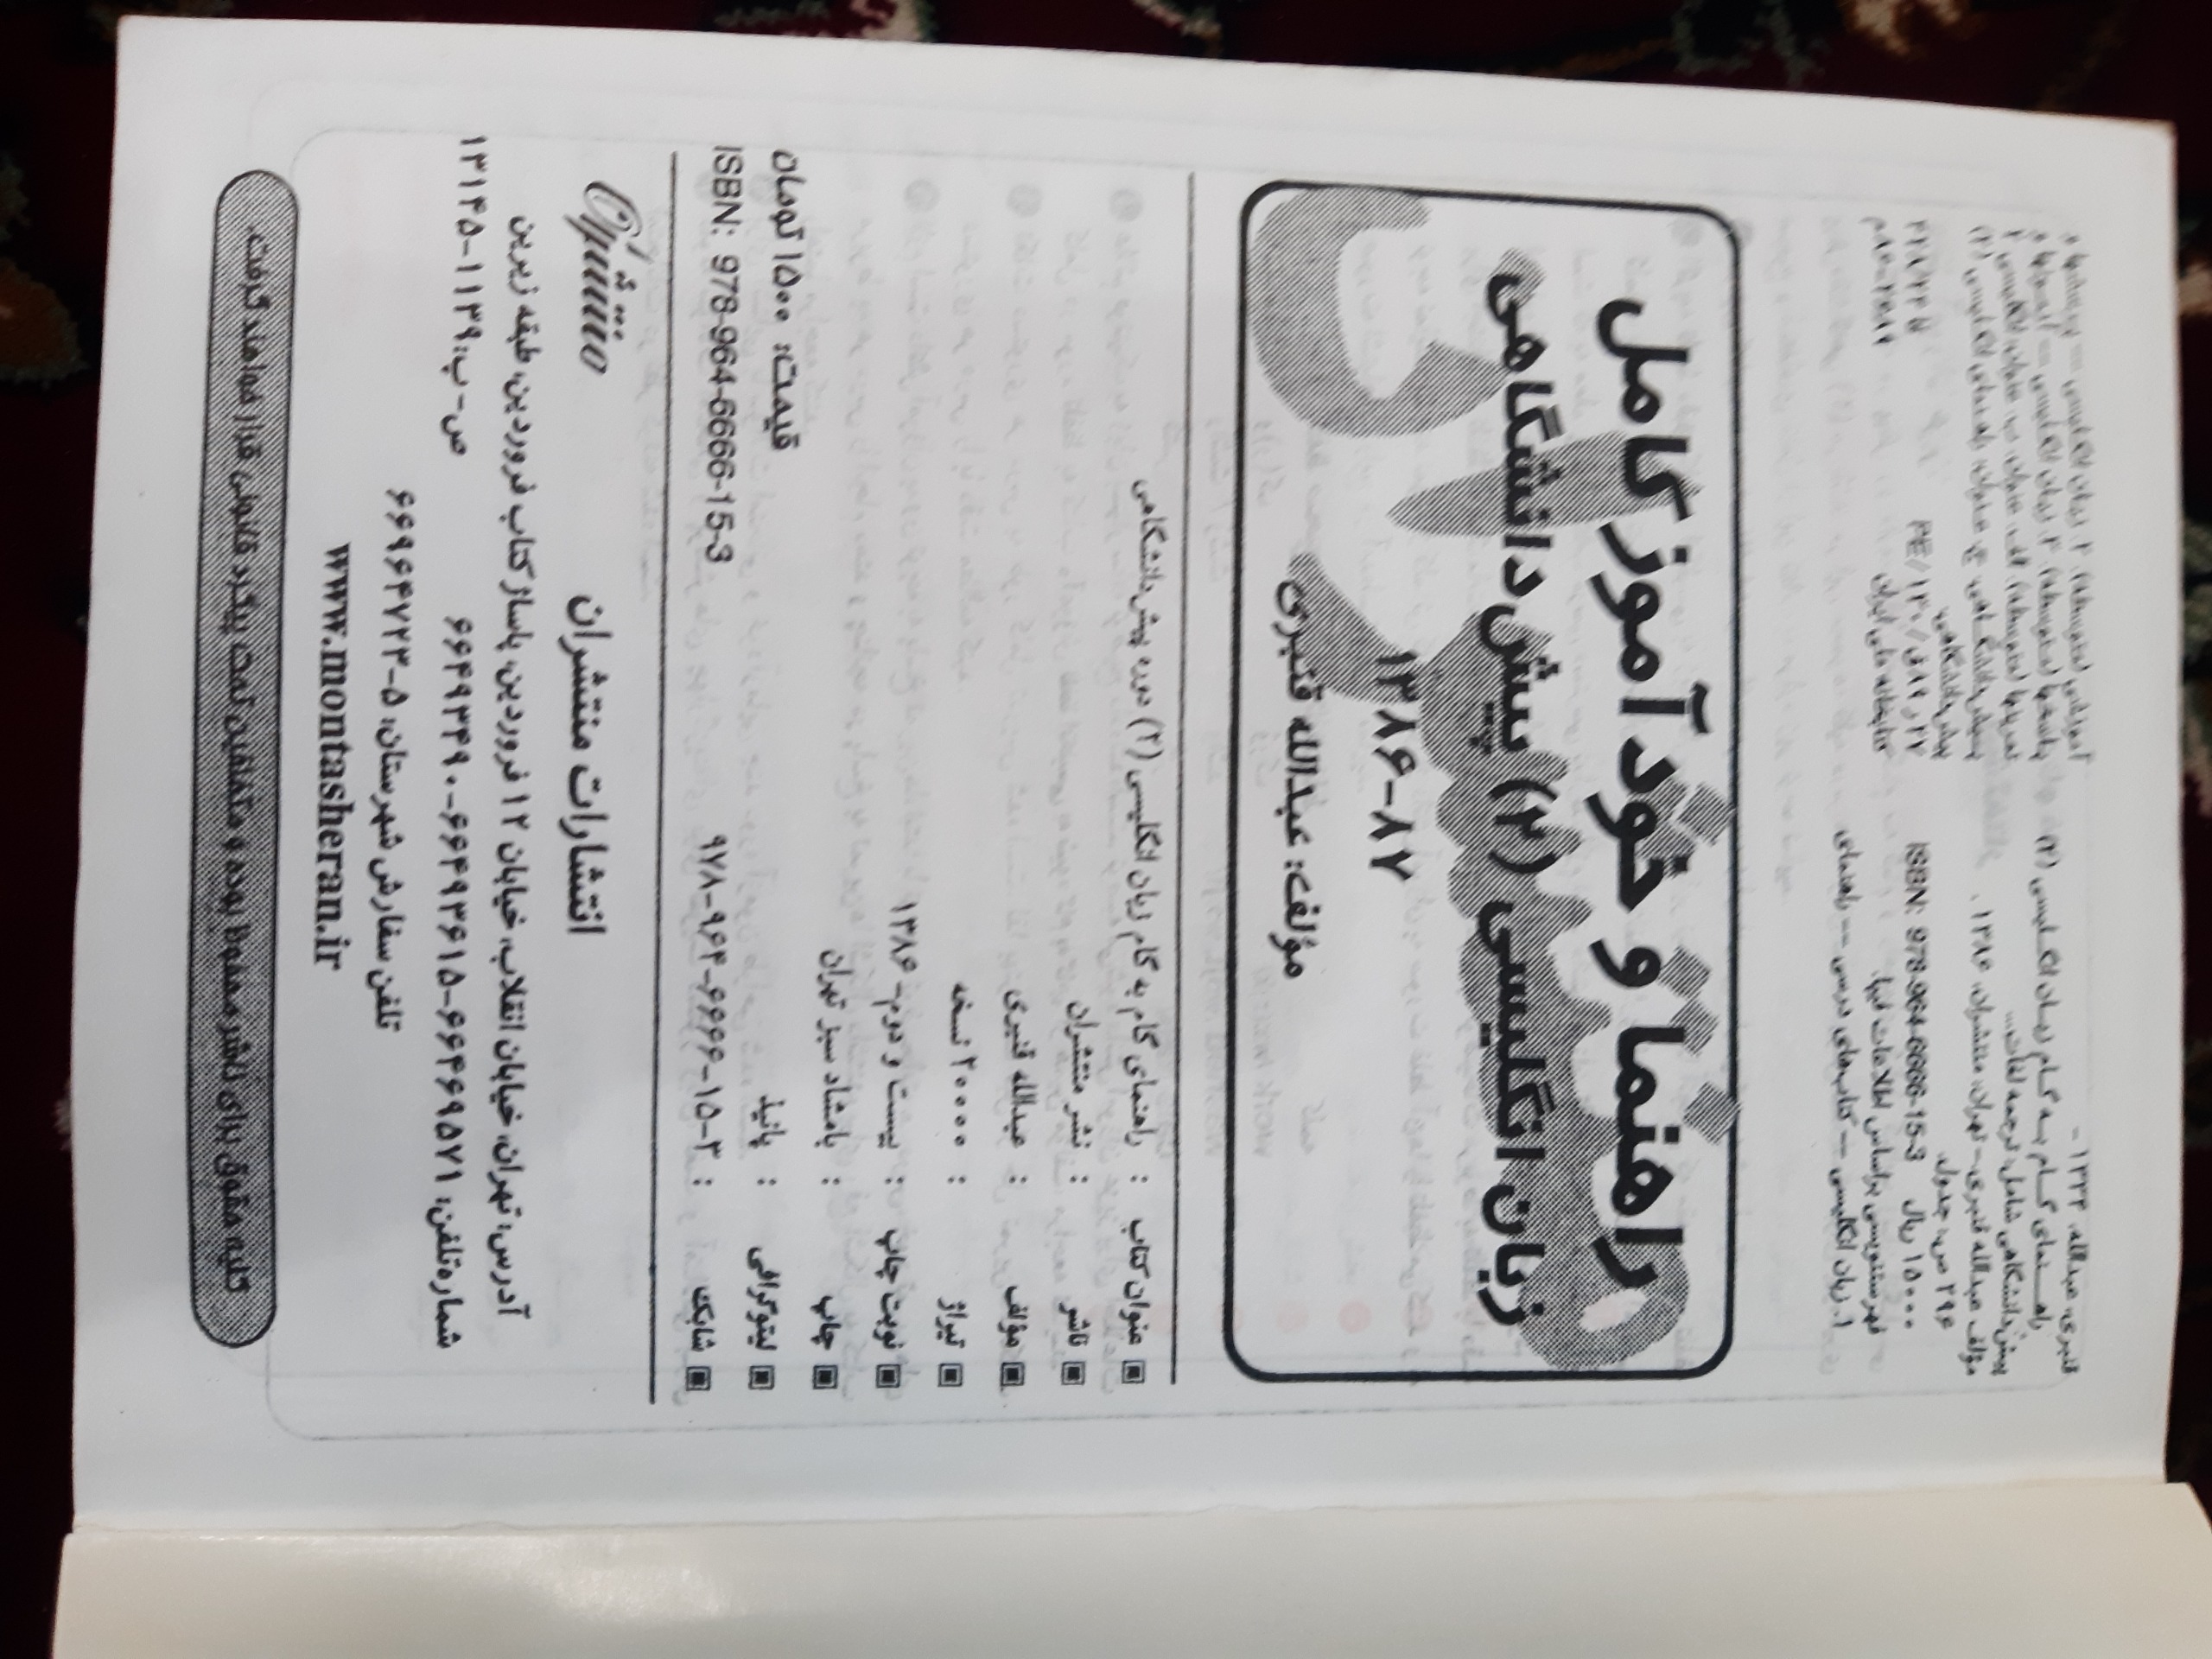 قنبری، عبدالله، ۱۳۳۳ -
راهـنمای گـام بـه گـام زبـان انگـلیسی (۲)
پیش‌دانشگاهی شامل: ترجمه لغات...
مؤلف عبدالله قنبری.- تهران: منتشران، ۱۳۸۶.
۲۹۶ ص.: جدول.
۱۵۰۰۰ ریال ISBN: 978-964-6666-15-3
فهرستنویسی براساس اطلاعات فیپا.
۱. زبان انگلیسی -- کتاب‌های درسی -- راهنمای
آموزشی (متوسطه). ۲. زبان انگلیسی -- پرسشها و
پاسخها (متوسطه). ۳. زبان انگلیسی -- آزمونها و
تمرینها (متوسطه). الف. عنوان. ب. عنوان: انگلیسی ۲
پیش‌دانشگاهی. ج. عنوان: راهنمای انگلیسی (۲)
پیش‌دانشگاهی.
PE/۱۱۳۰/
کتابخانه ملی ایران
راهنما و خودآموز کامل
زبان انگلیسی (۲) پیش‌دانشگاهی
۱۳۸۶-۸۷
مؤلف: عبدالله قنبری
▣ عنوان کتاب : راهنمای گام به گام زبان انگلیسی (۲) دوره پیش‌دانشگاهی
▣ ناشر : نشر منتشران
▣ مؤلف : عبدالله قنبری
▣ تیراژ : ۲۰۰۰۰ نسخه
▣ نوبت چاپ : بیست و دوم- ۱۳۸۶
▣ چاپ : بامشاد سبز تهران
▣ لیتوگرافی : پانیذ
قیمت: ۱۵۰۰ تومان
▣ شابک : ۹۷۸-۹۶۴-۶۶۶۶-۱۵-۳ ISBN: 978-964-6666-15-3
انتشارات منتشران
منتشران
آدرس: تهران، خیابان انقلاب، خیابان ۱۲ فروردین، پاساژ کتاب فروردین، طبقه زیرین
شماره تلفن: ۶۶۴۶۹۵۷۱-۶۶۴۹۳۶۱۵-۶۶۴۹۳۴۹۰ ص-پ: ۱۱۳۹-۱۳۱۴۵
تلفن سفارش شهرستان: ۵-۶۶۹۶۴۷۲۳
www.montasheran.ir
کلیه حقوق برای ناشر محفوظ بوده و متخلفین تحت پیگرد قانونی قرار خواهند گرفت.